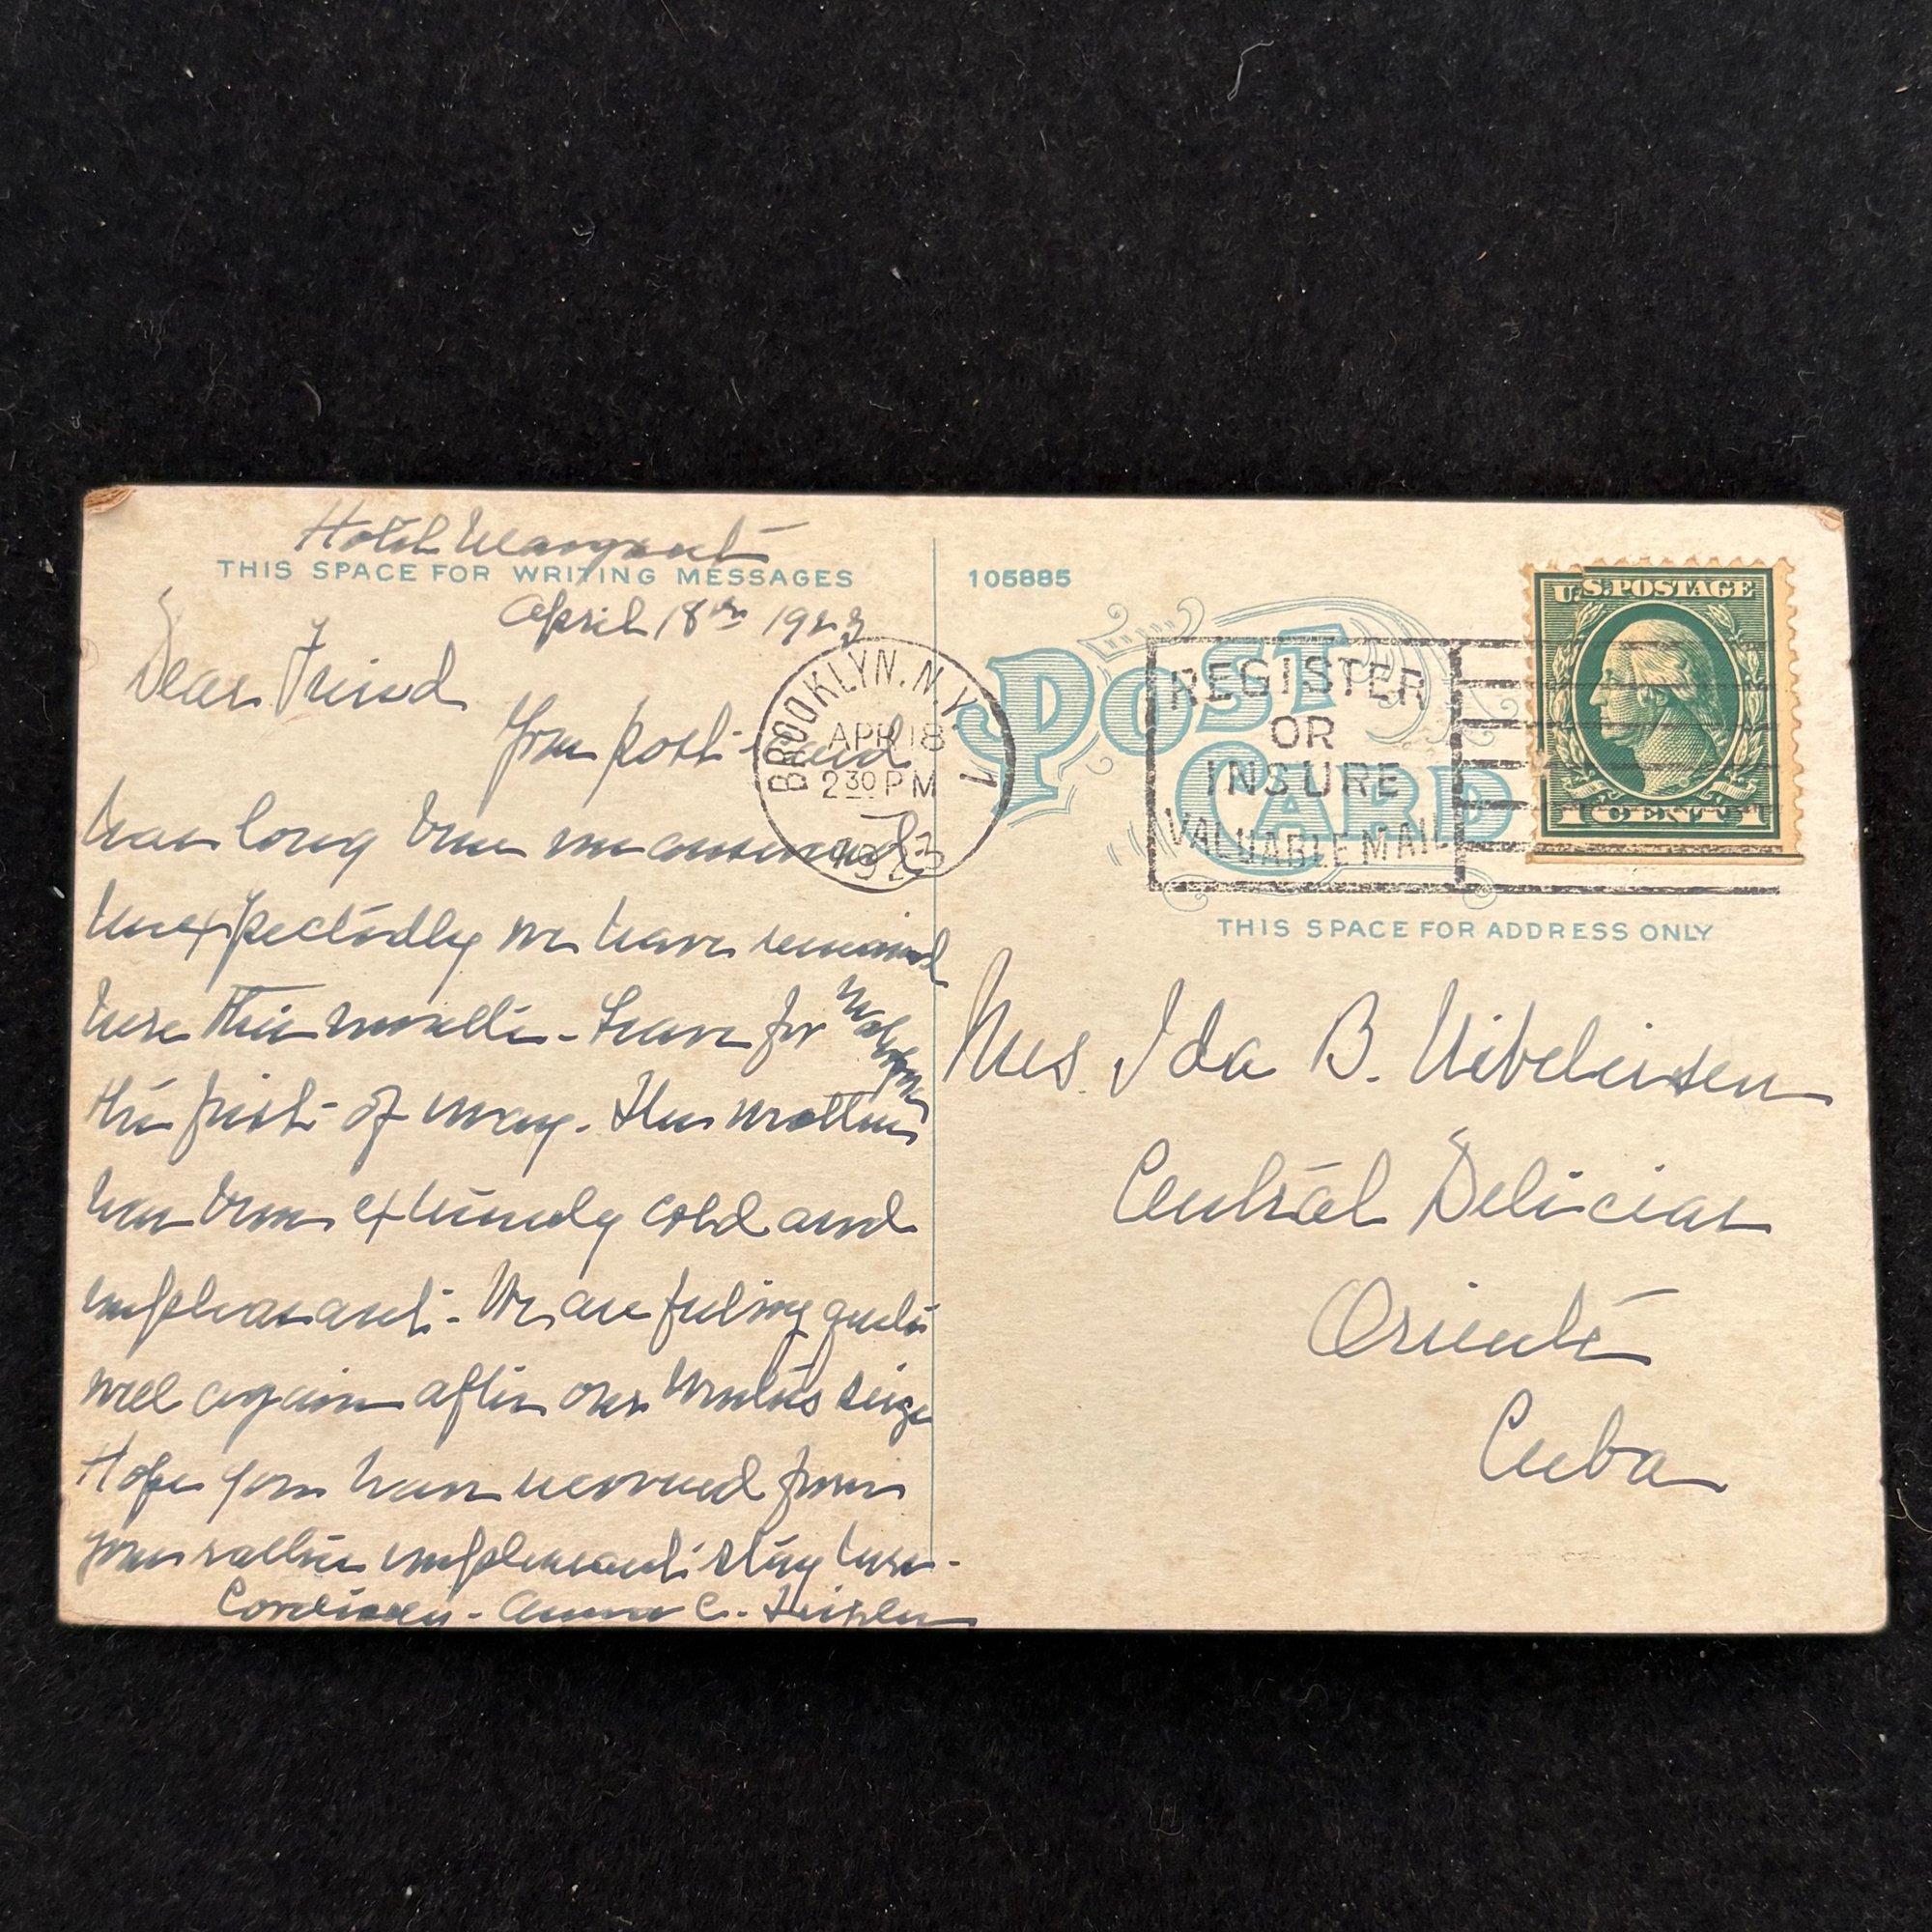 Hotel Margaret
THIS SPACE FOR WRITING MESSAGES
April 18th 1923
Dear Friend
Your post-card
has long been unanswered
Unexpectedly we have remained
here this month - Leave for
the first of May. The weather
has been extremely cold and
unpleasant - We are feeling quite
well again after our winter's seige
Hope you have recovered from
your rather unpleasant stay here -
Cordially - Anna C.
BROOKLYN, N.Y.
APR 18
2 30 PM
1923
105885
POST
CARD
REGISTER
OR
INSURE
VALUABLE MAIL
U.S. POSTAGE
1 CENT 1
THIS SPACE FOR ADDRESS ONLY
Mrs Ida B.
Central Delicias
Oriente
Cuba